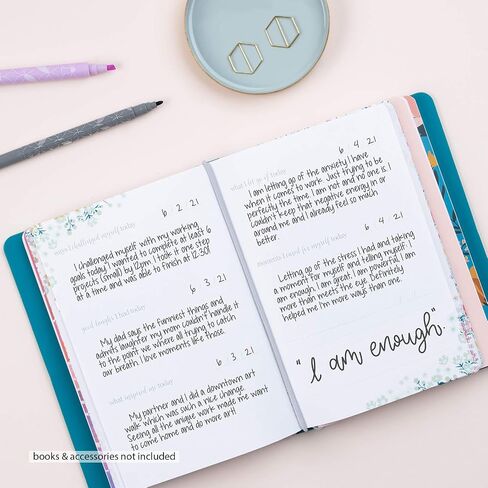 6 2 21
ways I challenged myself today
I challenged myself with my working
goals today! I wanted to complete at least 6
projects (small) by 12pm. I took it one step
at a time and was able to finish at 12:30!
6 3 21
good laughs I had today
My dad says the funniest things and
admits laughter my mom couldn't handle it
to the point we where all trying to catch
our breath. I love moments like those.
6 3 21
what inspired me today
My partner and I did a downtown art
walk which was such a nice change.
Seeing all the unique work made me want
to come home and do more art!
6 4 21
what I let go of today
I am letting go of the anxiety I have
when it comes to work. Just trying to be
perfectly the time. I am not and no one is. I
couldn't keep that negative energy in or
around me and I already feel so much
better.
6 4 21
moments I had for myself today
Letting go of the stress I had and taking
a moment for myself and telling myself. I
am enough. I am great. I am powerful. I am
more than meets the eye. Definitely
helped me I'm more ways than one.
"I am enough".
books & accessories not included